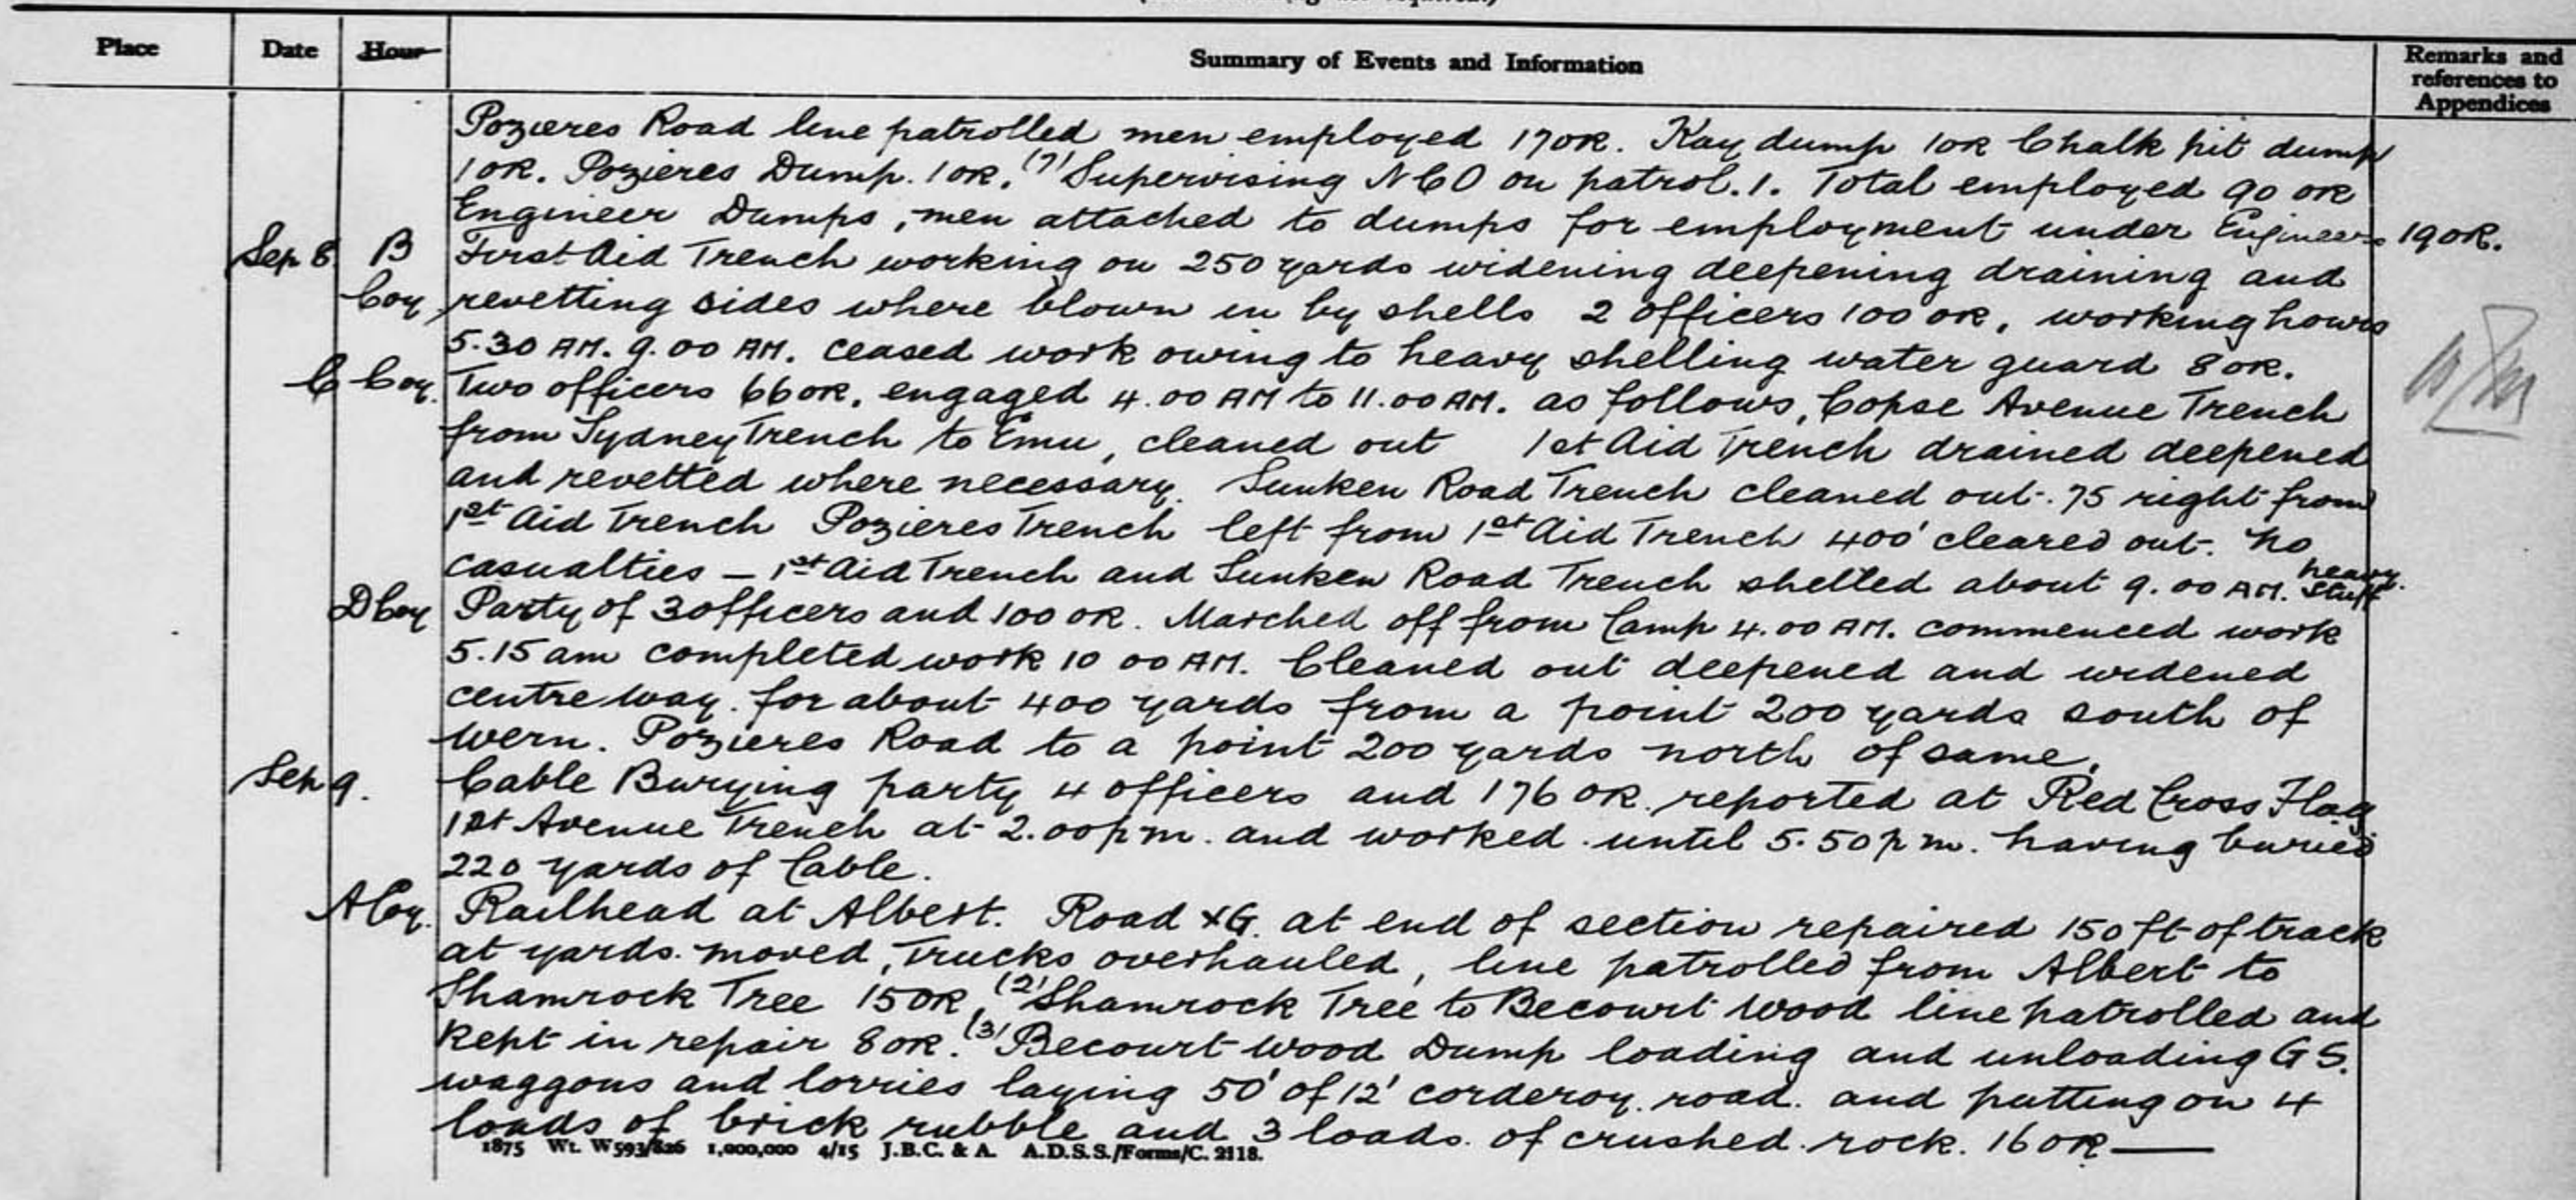 Place Date Hour Summary of Events and Information Remarks and references to Appendices
Pozieres Road line patrolled men employed 17 OR. Kay dump 1 OR Chalk pit dump
1 OR. Pozieres Dump. 1 OR. (7) Supervising NCO on patrol. 1. Total employed 90 OR
Engineer Dumps, men attached to dumps for employment under Engineers 19 OR.
Sep 8 B First Aid Trench working on 250 yards widening deepening draining and
Coy revetting sides where blown in by shells 2 officers 100 OR, working hours
5.30 AM. 9.00 AM. ceased work owing to heavy shelling water guard 8 OR.
C Coy. Two officers 66 OR, engaged 4.00 AM to 11.00 AM. as follows, Copse Avenue Trench
from Sydney Trench to Emu, cleaned out 1st Aid Trench drained deepened
and revetted where necessary. Sunken Road Trench cleaned out. 75 right from
1st Aid Trench Pozieres Trench left from 1st Aid Trench 400' cleared out. No
casualties – 1st Aid Trench and Sunken Road Trench shelled about 9.00 AM. heavy stuff
D Coy Party of 3 officers and 100 OR. Marched off from Camp 4.00 AM. commenced work
5.15 am completed work 10 00 AM. Cleaned out deepened and widened
centre way. for about 400 yards from a point 200 yards south of
wern. Pozieres Road to a point 200 yards north of same.
Sep 9. Cable Burying party 4 officers and 176 OR. reported at Red Cross Flag
1st Avenue Trench at 2.00 pm. and worked until 5.50 pm. having buried
220 yards of Cable.
A Coy. Railhead at Albert. Road XG. at end of section repaired 150 ft of track
at yards. moved, Trucks overhauled, line patrolled from Albert to
Shamrock Tree 15 OR, (2) Shamrock Tree to Becourt Wood line patrolled and
kept in repair 8 OR. (3) Becourt Wood Dump loading and unloading G S.
waggons and lorries laying 50' of 12' corderoy road. and putting on 4
loads of brick rubble and 3 loads of crushed rock. 16 OR —
1875 Wt. W593/826 1,000,000 4/15 J.B.C. & A. A.D.S.S./Forms/C. 2118.